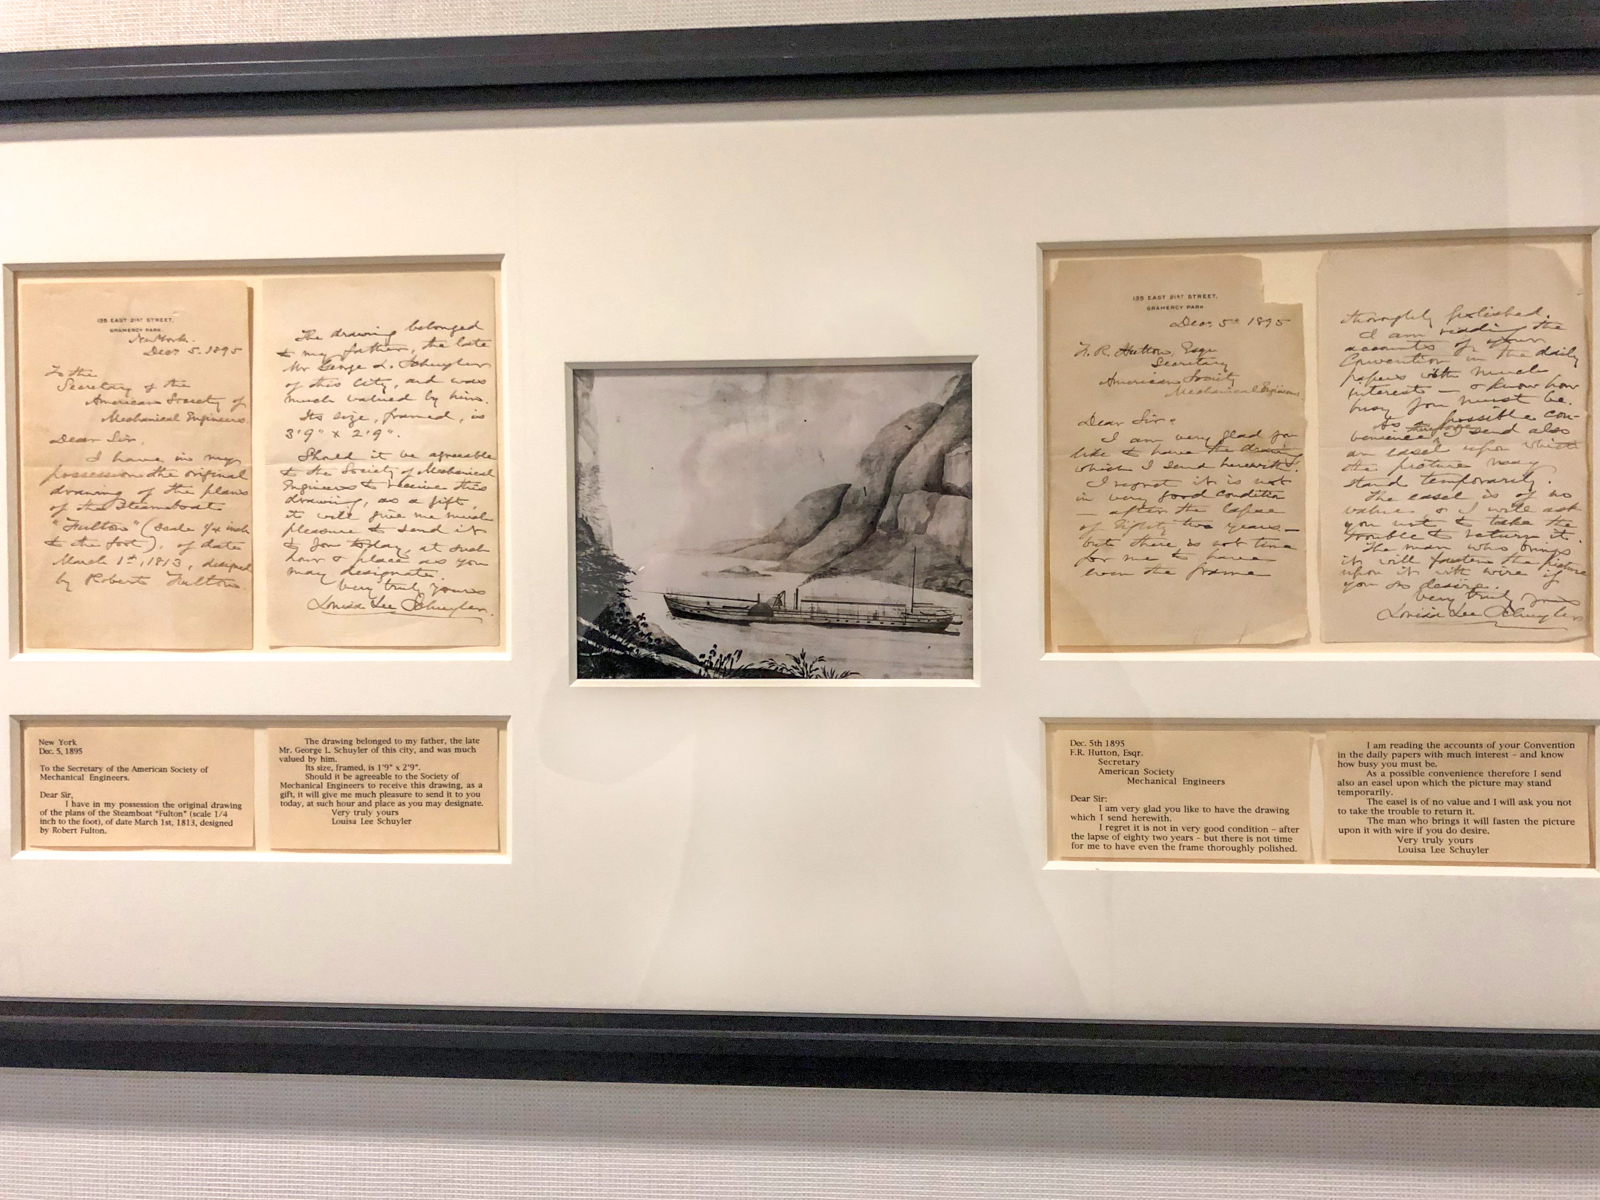 135 EAST 21ST STREET,
GRAMERCY PARK.
New York.
Decr. 5. 1895
To the
Secretary of the
American Society of
Mechanical Engineers
Dear Sir,
I have in my
possession the original
drawing of the plans
of the Steamboat
"Fulton" (scale 1/4 inch
to the foot), of date
March 1st, 1813, designed
by Robert Fulton.
The drawing belonged
to my father, the late
Mr George L. Schuyler
of this city, and was
much valued by him.
Its size, framed, is
3'9" x 2'9".
Should it be agreeable
to the Society of Mechanical
Engineers to receive this
drawing, as a gift,
it will give me much
pleasure to send it
to you today, at such
hour & place as you
may designate.
Very truly yours
Louisa Lee Schuyler.
135 EAST 21ST STREET,
GRAMERCY PARK
Decr. 5th 1895
F. R. Hutton, Esqr
Secretary
American Society
Mechanical Engineers
Dear Sir:
I am very glad you
like to have the drawing
which I send herewith.
I regret it is not
in very good condition
– after the lapse
of eighty two years –
but there is not time
for me to have
even the frame
thoroughly polished.
I am reading the
accounts of your
Convention in the daily
papers with much
interest – & know how
busy you must be.
As possible con-
venience I send also
an easel upon which
the picture may
stand temporarily.
The easel is of no
value & I will ask
you not to take the
trouble to return it.
The man who brings
it will fasten the picture
upon it with wire if
you so desire.
Very truly yours
Louisa Lee Schuyler
New York
Dec. 5, 1895
To the Secretary of the American Society of
Mechanical Engineers.
Dear Sir,
I have in my possession the original drawing
of the plans of the Steamboat "Fulton" (scale 1/4
inch to the foot), of date March 1st, 1813, designed
by Robert Fulton.
The drawing belonged to my father, the late
Mr. George L. Schuyler of this city, and was much
valued by him.
Its size, framed, is 1'9" x 2'9".
Should it be agreeable to the Society of
Mechanical Engineers to receive this drawing, as a
gift, it will give me much pleasure to send it to you
today, at such hour and place as you may designate.
Very truly yours
Louisa Lee Schuyler
Dec. 5th 1895
F.R. Hutton, Esqr.
Secretary
American Society
Mechanical Engineers
Dear Sir:
I am very glad you like to have the drawing
which I send herewith.
I regret it is not in very good condition – after
the lapse of eighty two years – but there is not time
for me to have even the frame thoroughly polished.
I am reading the accounts of your Convention
in the daily papers with much interest – and know
how busy you must be.
As a possible convenience therefore I send
also an easel upon which the picture may stand
temporarily.
The easel is of no value and I will ask you not
to take the trouble to return it.
The man who brings it will fasten the picture
upon it with wire if you do desire.
Very truly yours
Louisa Lee Schuyler